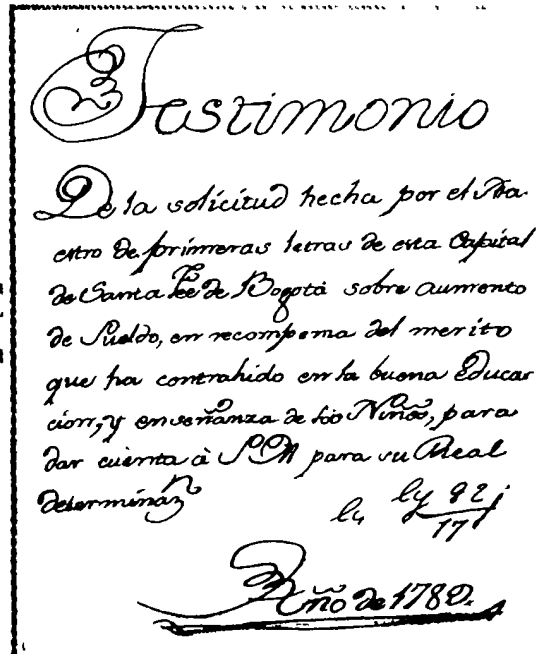 Testimonio
De la solicitud hecha por el Ma-
estro de primeras letras de esta Capital
de Santa Fee de Bogotá sobre aumento
de Sueldo, en recompensa del merito
que ha contrahido en la buena Educa-
cion, y enseñanza de los Niños, para
dar cuenta à S.M. para su Real
determinaz.n
Año de 1780.